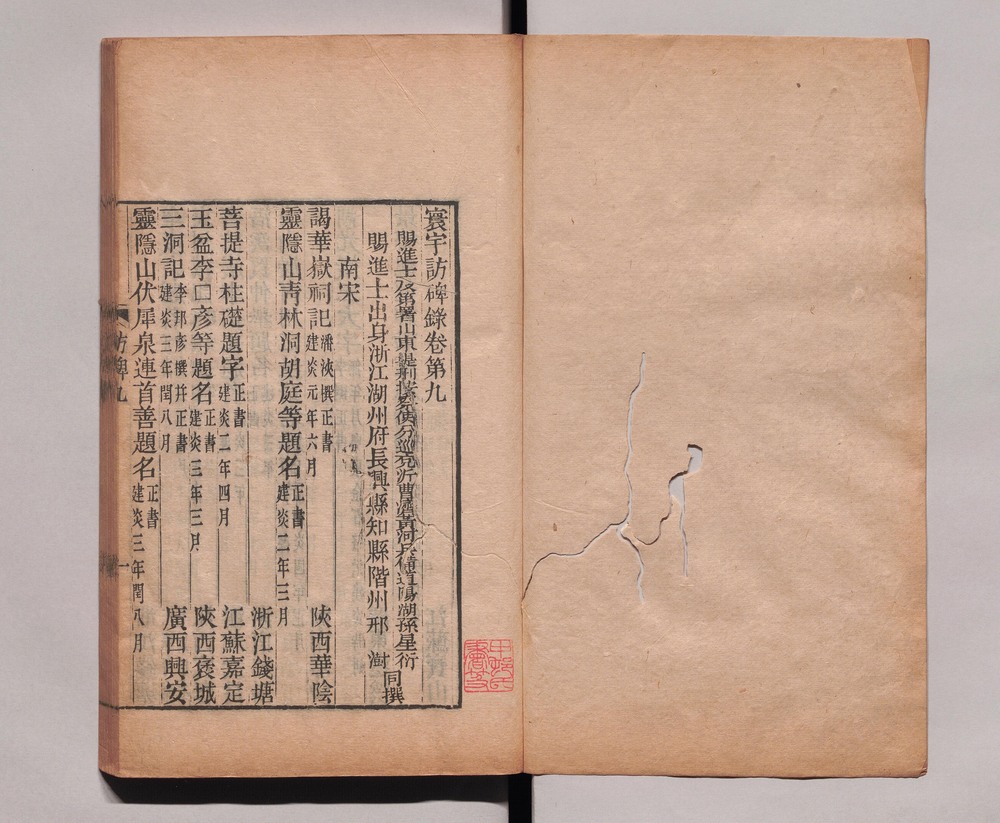 寰宇訪碑錄卷第九
賜進士及第署山東提刑按察使分巡兗沂曹濟黃河兵備道陽湖孫星衍
賜進士出身浙江湖州府長興縣知縣階州邢澍
同撰
南宋
謁華嶽祠記 潘浹撰正書 建炎元年六月 陝西華陰
靈隱山青林洞胡庭等題名 正書 建炎二年三月
浙江錢塘
菩提寺柱礎題字 正書 建炎二年四月 江蘇嘉定
玉盆李口彥等題名 正書 建炎三年三月 陝西褒城
三洞記 李邦彥撰并正書 建炎三年閏八月 廣西興安
靈隱山伏犀泉連首善題名 正書 建炎三年閏八月
訪碑九
一